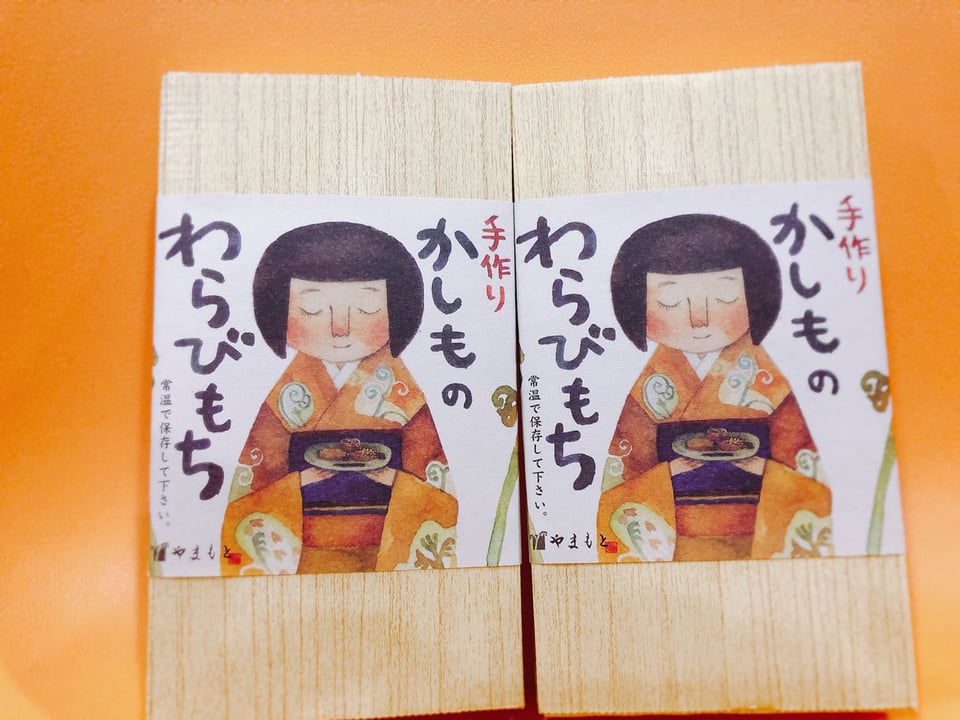 手作り
かしもの
わらびもち
常温で保存して下さい。
やまもと
手作り
かしもの
わらびもち
常温で保存して下さい。
やまもと